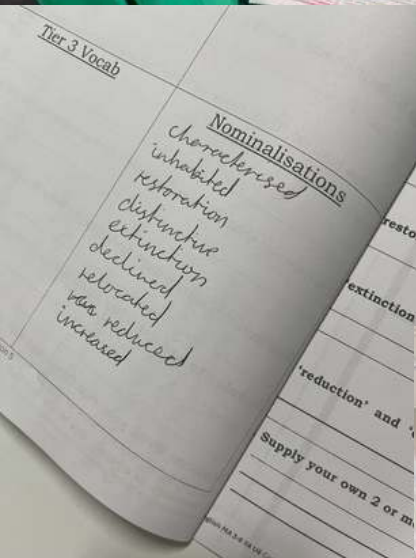 Tier 3 Vocab
Nominalisations
characterised
inhabited
restoration
distinctive
extinction
declined
relocated
reduced
increased
'extinction
'reduction' and
Supply your own 2 or